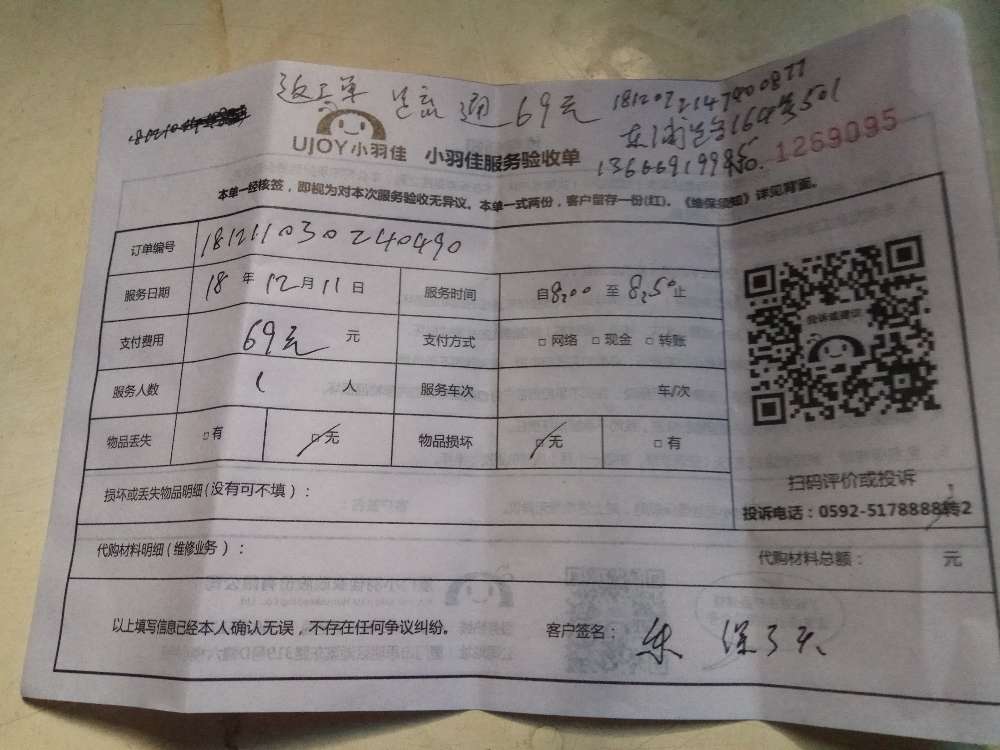 返工单 通 69元
UJOY小羽佳 小羽佳服务验收单
No. 1269095
本单一经核签，即视为对本次服务验收无异议。本单一式两份，客户留存一份(红)。《维保须知》详见背面。
订单编号 181211030240490
服务日期 18 年 12 月 11 日 服务时间 自8:00 至 8:50止
支付费用 69元 元 支付方式 □ 网络 □ 现金 □ 转账
服务人数 1 人 服务车次 车/次
物品丢失 □ 有 □ 无 物品损坏 □ 无 □ 有
投诉或建议
扫码评价或投诉
投诉电话：0592-5178888转2
损坏或丢失物品明细(没有可不填）：
代购材料明细(维修业务）： 代购材料总额： 元
以上填写信息已经本人确认无误，不存在任何争议纠纷。 客户签名：